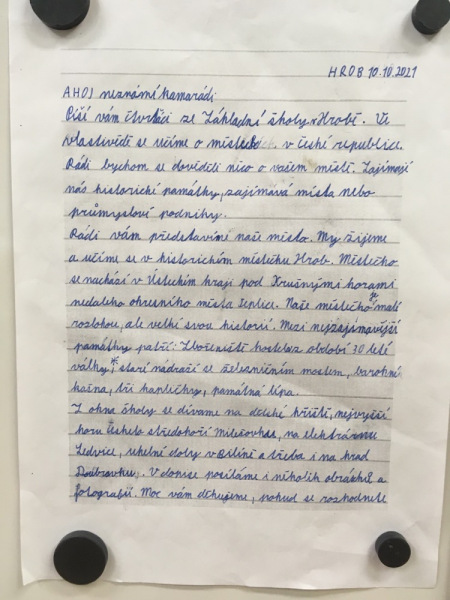 HROB 10.10.2021
AHOJ neznámí kamarádi
Píší vám čtvrťáci ze Základní školy v Hrobě. Ve
vlastivědě se učíme o místech v české republice.
Rádi bychom se dověděli něco o vašem městě. Zajímají
nás historické památky, zajímavá místa nebo
průmyslové podniky.
Rádi vám představíme naše místa. My žijeme
a učíme se v historickém městečku Hrob. Městečko
se nachází v Ústeckém kraji pod Krušnými horami
nedaleko okresního města Teplice. Naše městečko je malé
rozlohou, ale velké svou historií. Mezi nejzajímavější
památky patří: Zbořeniště kostela z období 30 leté
války, staré nádraží se železničním mostem, barokní
kašna, tři kapličky, památná lípa.
Z okna školy se díváme na dětské hřiště, nejvyšší
horu Českého středohoří Milešovku, na elektrárnu
Ledvice, uhelné doly v Bílině a třeba i na hrad
Doubravku. V dopise posíláme i několik obrázků a
fotografií. Moc vám děkujeme, pokud se rozhodnete